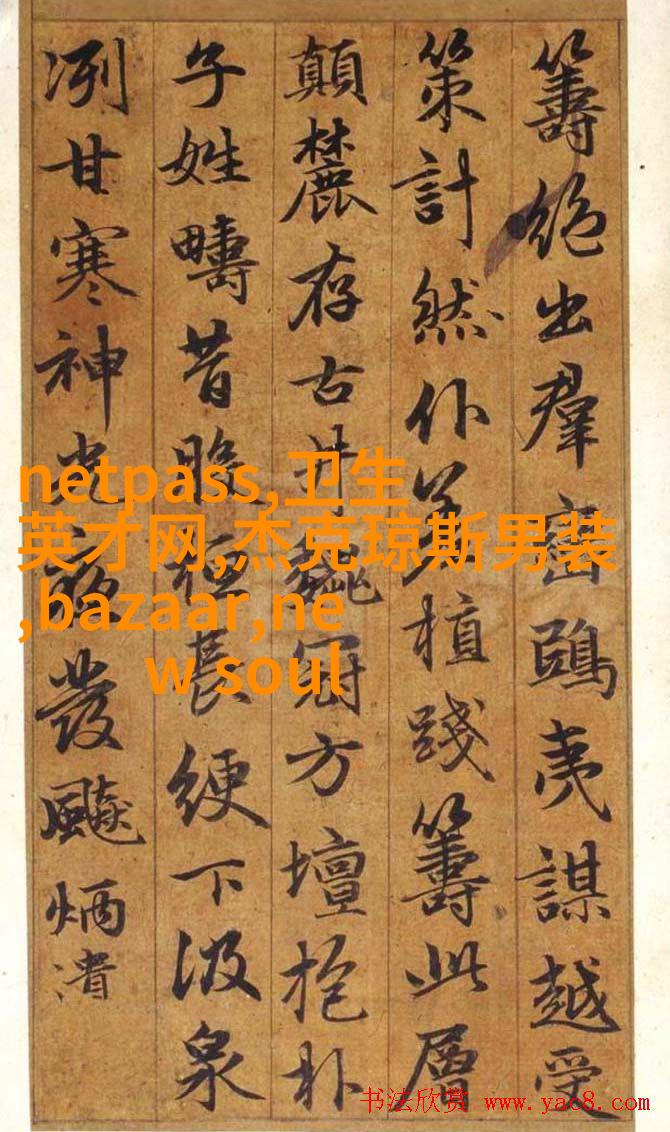 籌絕出羣巒鴟夷謀越受
策計然仆植踐籌此層
顛麓存古井冠方壇抱朴
子姓疇昔長綆下汲泉
冽甘寒神光發飈炳潰
netpass,卫生
英才网,杰克琼斯男装
,bazaar,ne
w soul
书法欣赏 www.yac8.com